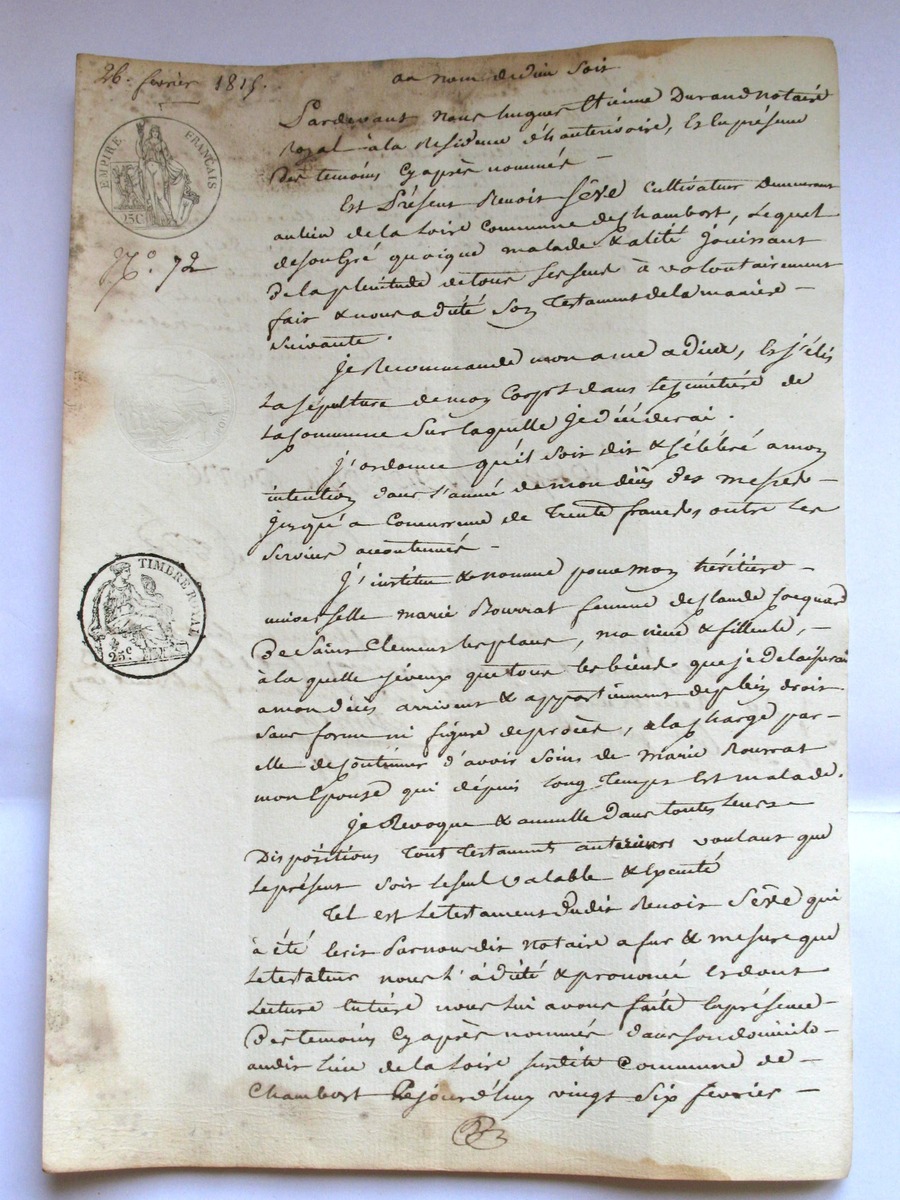 26. fevrier 1815.
au nom de dieu soit
Pardevant nous hugues Etienne Durand notaire
Royal à la Residence d'hauterivoire, Et En présence
des temoins Cyaprès nommés —
EMPIRE FRANÇAIS
25C
Est Présent Benoit Sève Cultivateur Demeurant
au lieu de la Loire Commune de Chambost, Lequel
de son Gré quoique malade & alité jouissant
N.° 72
de la plenitude de tous ses sens à volontairement
fait & nous a dicté son Testament de la manière —
suivante.
je Recommande mon ame a dieu, Et j'élis
La sépulture de mon Corps dans le cimétière de
La Commune sur laquelle je décéderai.
j'ordonne qu'il soit dit & Célébré a mon
intention dans l'année de mon décès des messes —
jusqu'a Concurrence de Trente francs, outre les
services accoutumés —
TIMBRE ROYAL
25.c
j'institue & nomme pour mon héritière —
universelle marie Bourrat femme de Claude Jacquard
de Saint Clement les places, ma niece & filleule, —
à la quelle je veux que tous les biens que je delaisserai
a mon décès arrivent & appartiennent de plein droit
sans forme ni figure de procès, a la charge par —
elle de Continuer d'avoir soins de marie Bourrat
mon Epouse qui dépuis long-temps Est malade.
je Revoque & annulle dans toutes leurs —
Dispositions tout testaments anterieurs voulant que
le présent soit le seul valable & Exécuté
Tel est le testament dudit Benoit Sève qui
à été Ecrit Par nous dit notaire a fur & mesure que
le testateur nous l'à dicté & prononcé Et dont
Lecture Entière nous lui avons faite En présence —
des temoins Cyaprès nommés dans son domicile —
audit lieu de la Loire susdite Commune de —
Chambost Cejourd'huy vingt six fevrier —